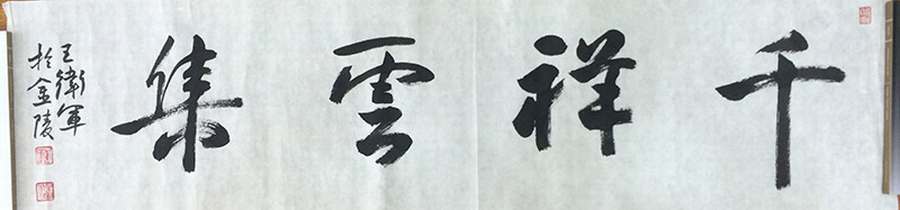 千祥雲集
王衛軍
於金陵